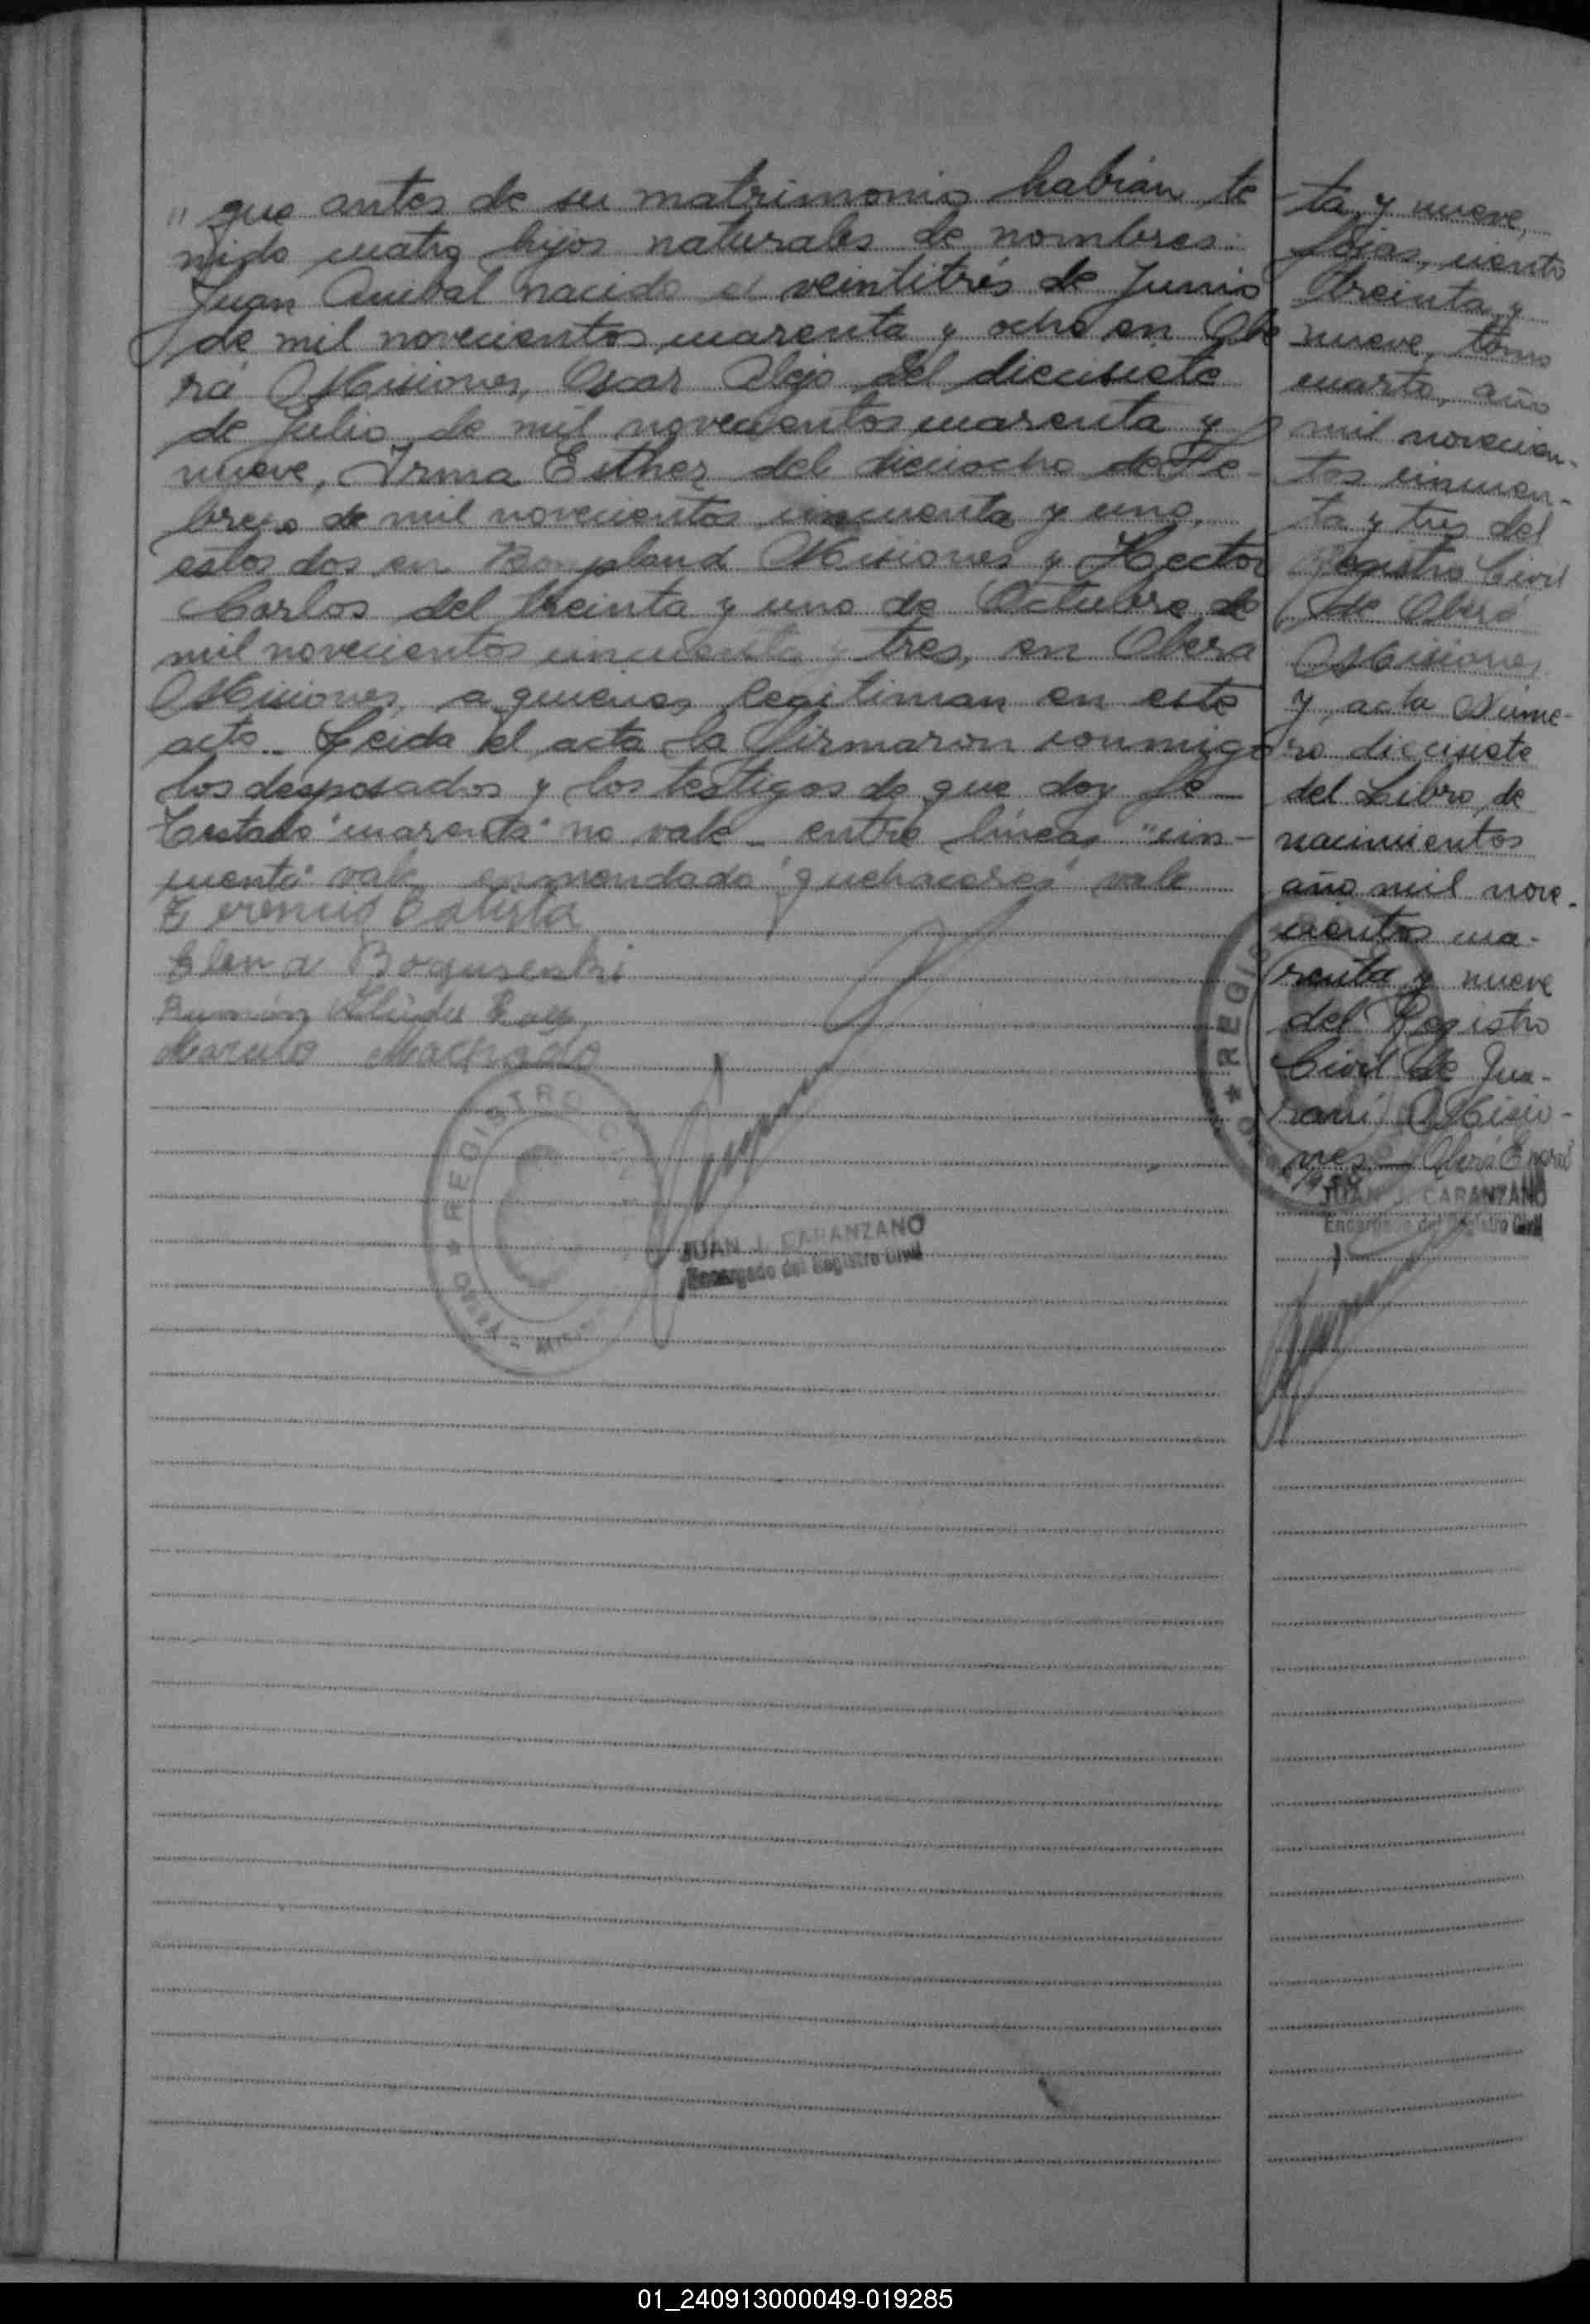 " que antes de su matrimonio habían te
nido cuatro hijos naturales de nombres:
Juan Anibal nacido el veintitrés de Junio
de mil novecientos cuarenta y ocho en Obe
rá Misiones, Oscar Alejo del diecisiete
de Julio de mil novecientos cuarenta y
nueve, Irma Esther del dieciocho de Fe-
brero de mil novecientos cincuenta y uno,
estos dos en Bonpland Misiones y Hector
Carlos del treinta y uno de Octubre de
mil novecientos cincuenta y tres, en Oberá
Misiones, a quienes legitiman en este
acto.- Leida el acta la firmaron conmigo
los desposados y los testigos de que doy fe-
Testado "cuarenta" no vale - entre lineas "cin-
cuenta" vale, enmendado "quehaceres" vale
Terencio Batista
Elena
Ramón
Marcelo Machado
REGISTRO CIVIL
JUAN J. CARANZANO
Encargado del Registro Civil
ta y nueve,
fojas, ciento
treinta y
nueve, tomo
cuarto, año
mil novecien-
tos cincuen-
ta y tres del
Registro Civil
de Oberá
Misiones
y, acta Núme-
ro diecisiete
del Libro de
nacimientos
año mil nove-
cientos cua-
renta y nueve
del Registro
Civil de Gua-
raní Misio-
nes - Oberá Enero
REGIS
JUAN J. CARANZANO
Encargado del Registro Civil
01_240913000049-019285